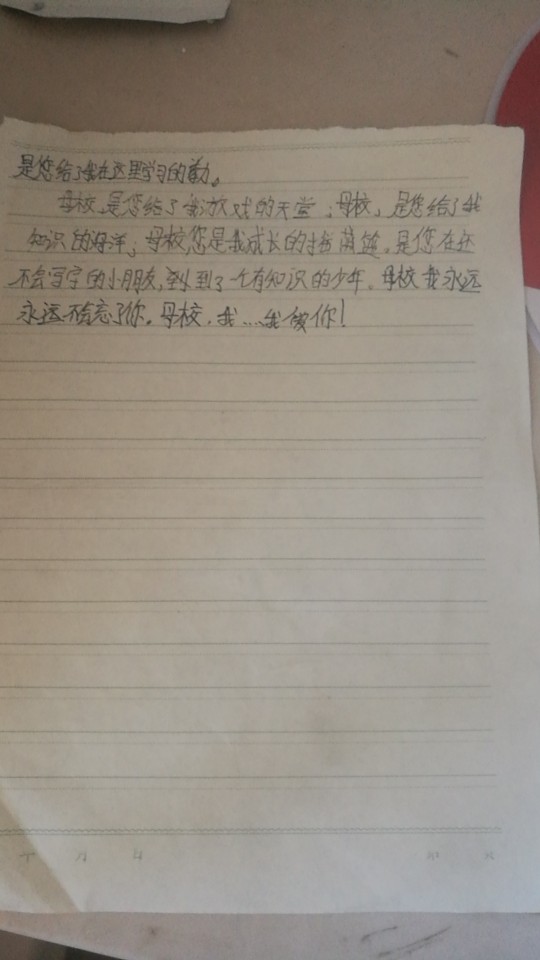 是您给了我在这里学习的动力。
母校,是您给了我游戏的天堂;母校,是您给了我
知识的海洋;母校,您是我成长的摇篮,是您在还
不会写字的小朋友,到了一个有知识的少年。母校我永远
永远不会忘了你。母校,我……我爱你!
年 月 日
第 页